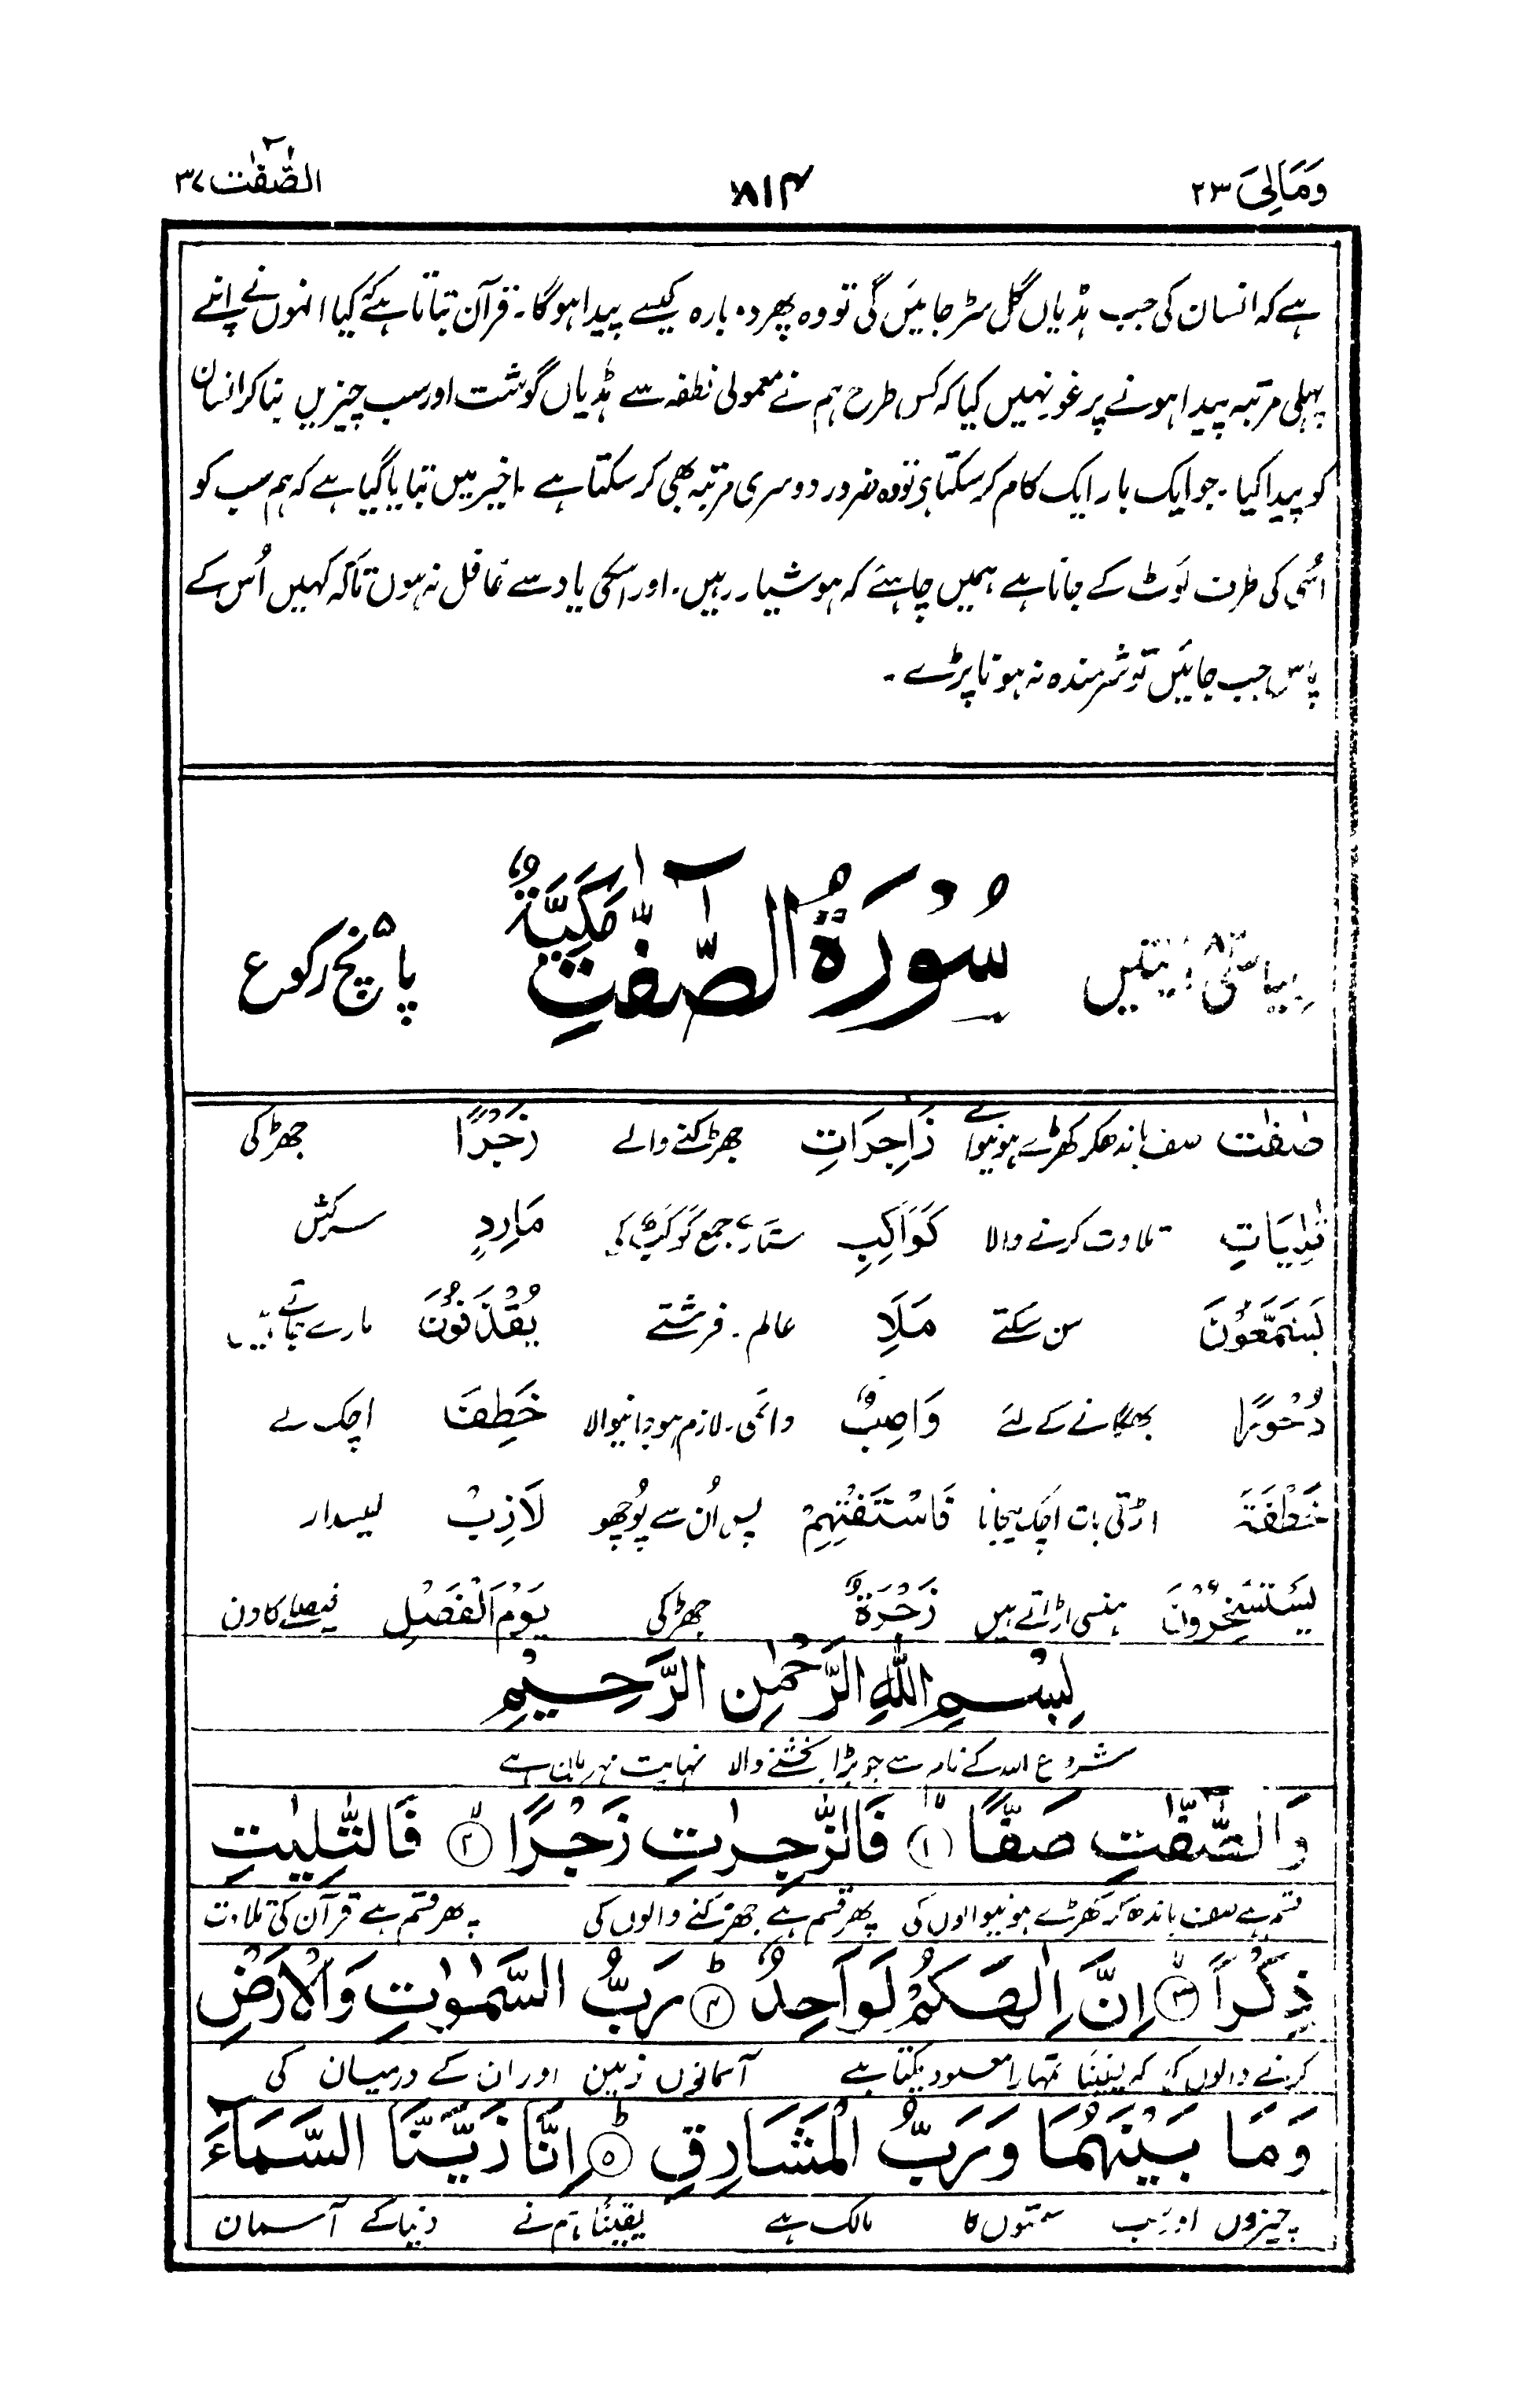 وَمَالِیَ ۲۳ ۸۱۴ الصّٰٓفّٰت ۳۷
ہے کہ انسان کی جب ہڈیاں گل سڑ جائیں گی تو وہ پھر دوبارہ کیسے پیدا ہوگا۔ قرآن بتاتا ہے کہ کیا انہوں نے اپنے
پہلی مرتبہ پیدا ہونے پر غور نہیں کیا کہ کس طرح ہم نے معمولی نطفہ سے ہڈیاں گوشت اور سب چیزیں بنا کر انسان
کو پیدا کیا۔ جو ایک بار ایک کام کر سکتا ہے تو وہ ضرور دوسری مرتبہ بھی کر سکتا ہے۔ اخیر میں بتایا گیا ہے کہ ہم سب کو
اُسی کی طرف لَوٹ کے جانا ہے ہمیں چاہئے کہ ہوشیار رہیں۔ اور اسکی یاد سے غافل نہ ہوں تاکہ کہیں اُس کے
پاس جب جائیں تو شرمندہ نہ ہونا پڑے۔
آیتیں سُوْرَةُ الصّٰٓفّٰتِ مَكِّیَّةٌ پانچ ۵ رکوع
صٰفٰت صف باندھکر کھڑے ہونیوالے زَاجِرَاتِ جھڑکنے والے زَجْرًا جھڑکی
تٰلِیَاتِ تلاوت کرنے والا كَوَاكِبِ ستارے جمع كَوْكَبٌ کی مَارِدٍ سرکش
یَسَّمَّعُوْنَ سن سکتے مَلَاِ عالم۔ فرشتے یُقْذَفُوْنَ مارے جاتے ہیں
دُحُوْرًا بھگانے کے لئے وَاصِبٌ دائمی۔ لازم ہو جانیوالا خَطِفَ اچک لے
خَطْفَةَ اڑتی بات اُچک لیجانا فَاسْتَفْتِهِمْ پس اُن سے پُوچھو لَازِبْ لیسدار
یَسْتَسْخِرُوْنَ ہنسی اڑاتے ہیں زَجْرَةٌ جھڑکی یَوْمَ الْفَصْلِ فیصلے کا دن
بِسْمِ اللّٰهِ الرَّحْمٰنِ الرَّحِیْمِ
شروع اللہ کے نام سے جو بڑا بخشنے والا نہایت مہربان ہے
وَالصّٰٓفّٰتِ صَفًّا ۙ﴿۱﴾ فَالزّٰجِرٰتِ زَجْرًا ۙ﴿۲﴾ فَالتّٰلِیٰتِ
قسم ہے صف باندھ کر کھڑے ہونیوالوں کی پھر قسم ہے جھڑکنے والوں کی پھر قسم ہے قرآن کی تلاوت
ذِكْرًا ۙ﴿۳﴾ اِنَّ اِلٰهَكُمْ لَوَاحِدٌ ؕ﴿۴﴾ رَبُّ السَّمٰوٰتِ وَالْاَرْضِ
کرنے والوں کی کہ یقینًا تمہارا معبود یکتا ہے آسمانوں زمین اور ان کے درمیان کی
وَمَا بَیْنَهُمَا وَرَبُّ الْمَشَارِقِ ؕ﴿۵﴾ اِنَّا زَیَّنَّا السَّمَآءَ
چیزوں اور سب سمتوں کا مالک ہے یقینًا ہم نے دنیا کے آسمان